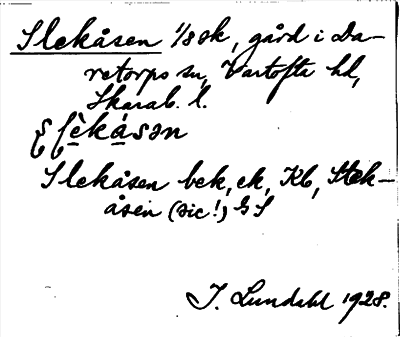 Slekåsen 1/8 sk, gård i Da-
retorps sn, Vartofta hd,
Skarab. l.
Slekåsen bek, ek, Kb, Stek-
åsen (sic!) GS
J. Lundahl 1928.